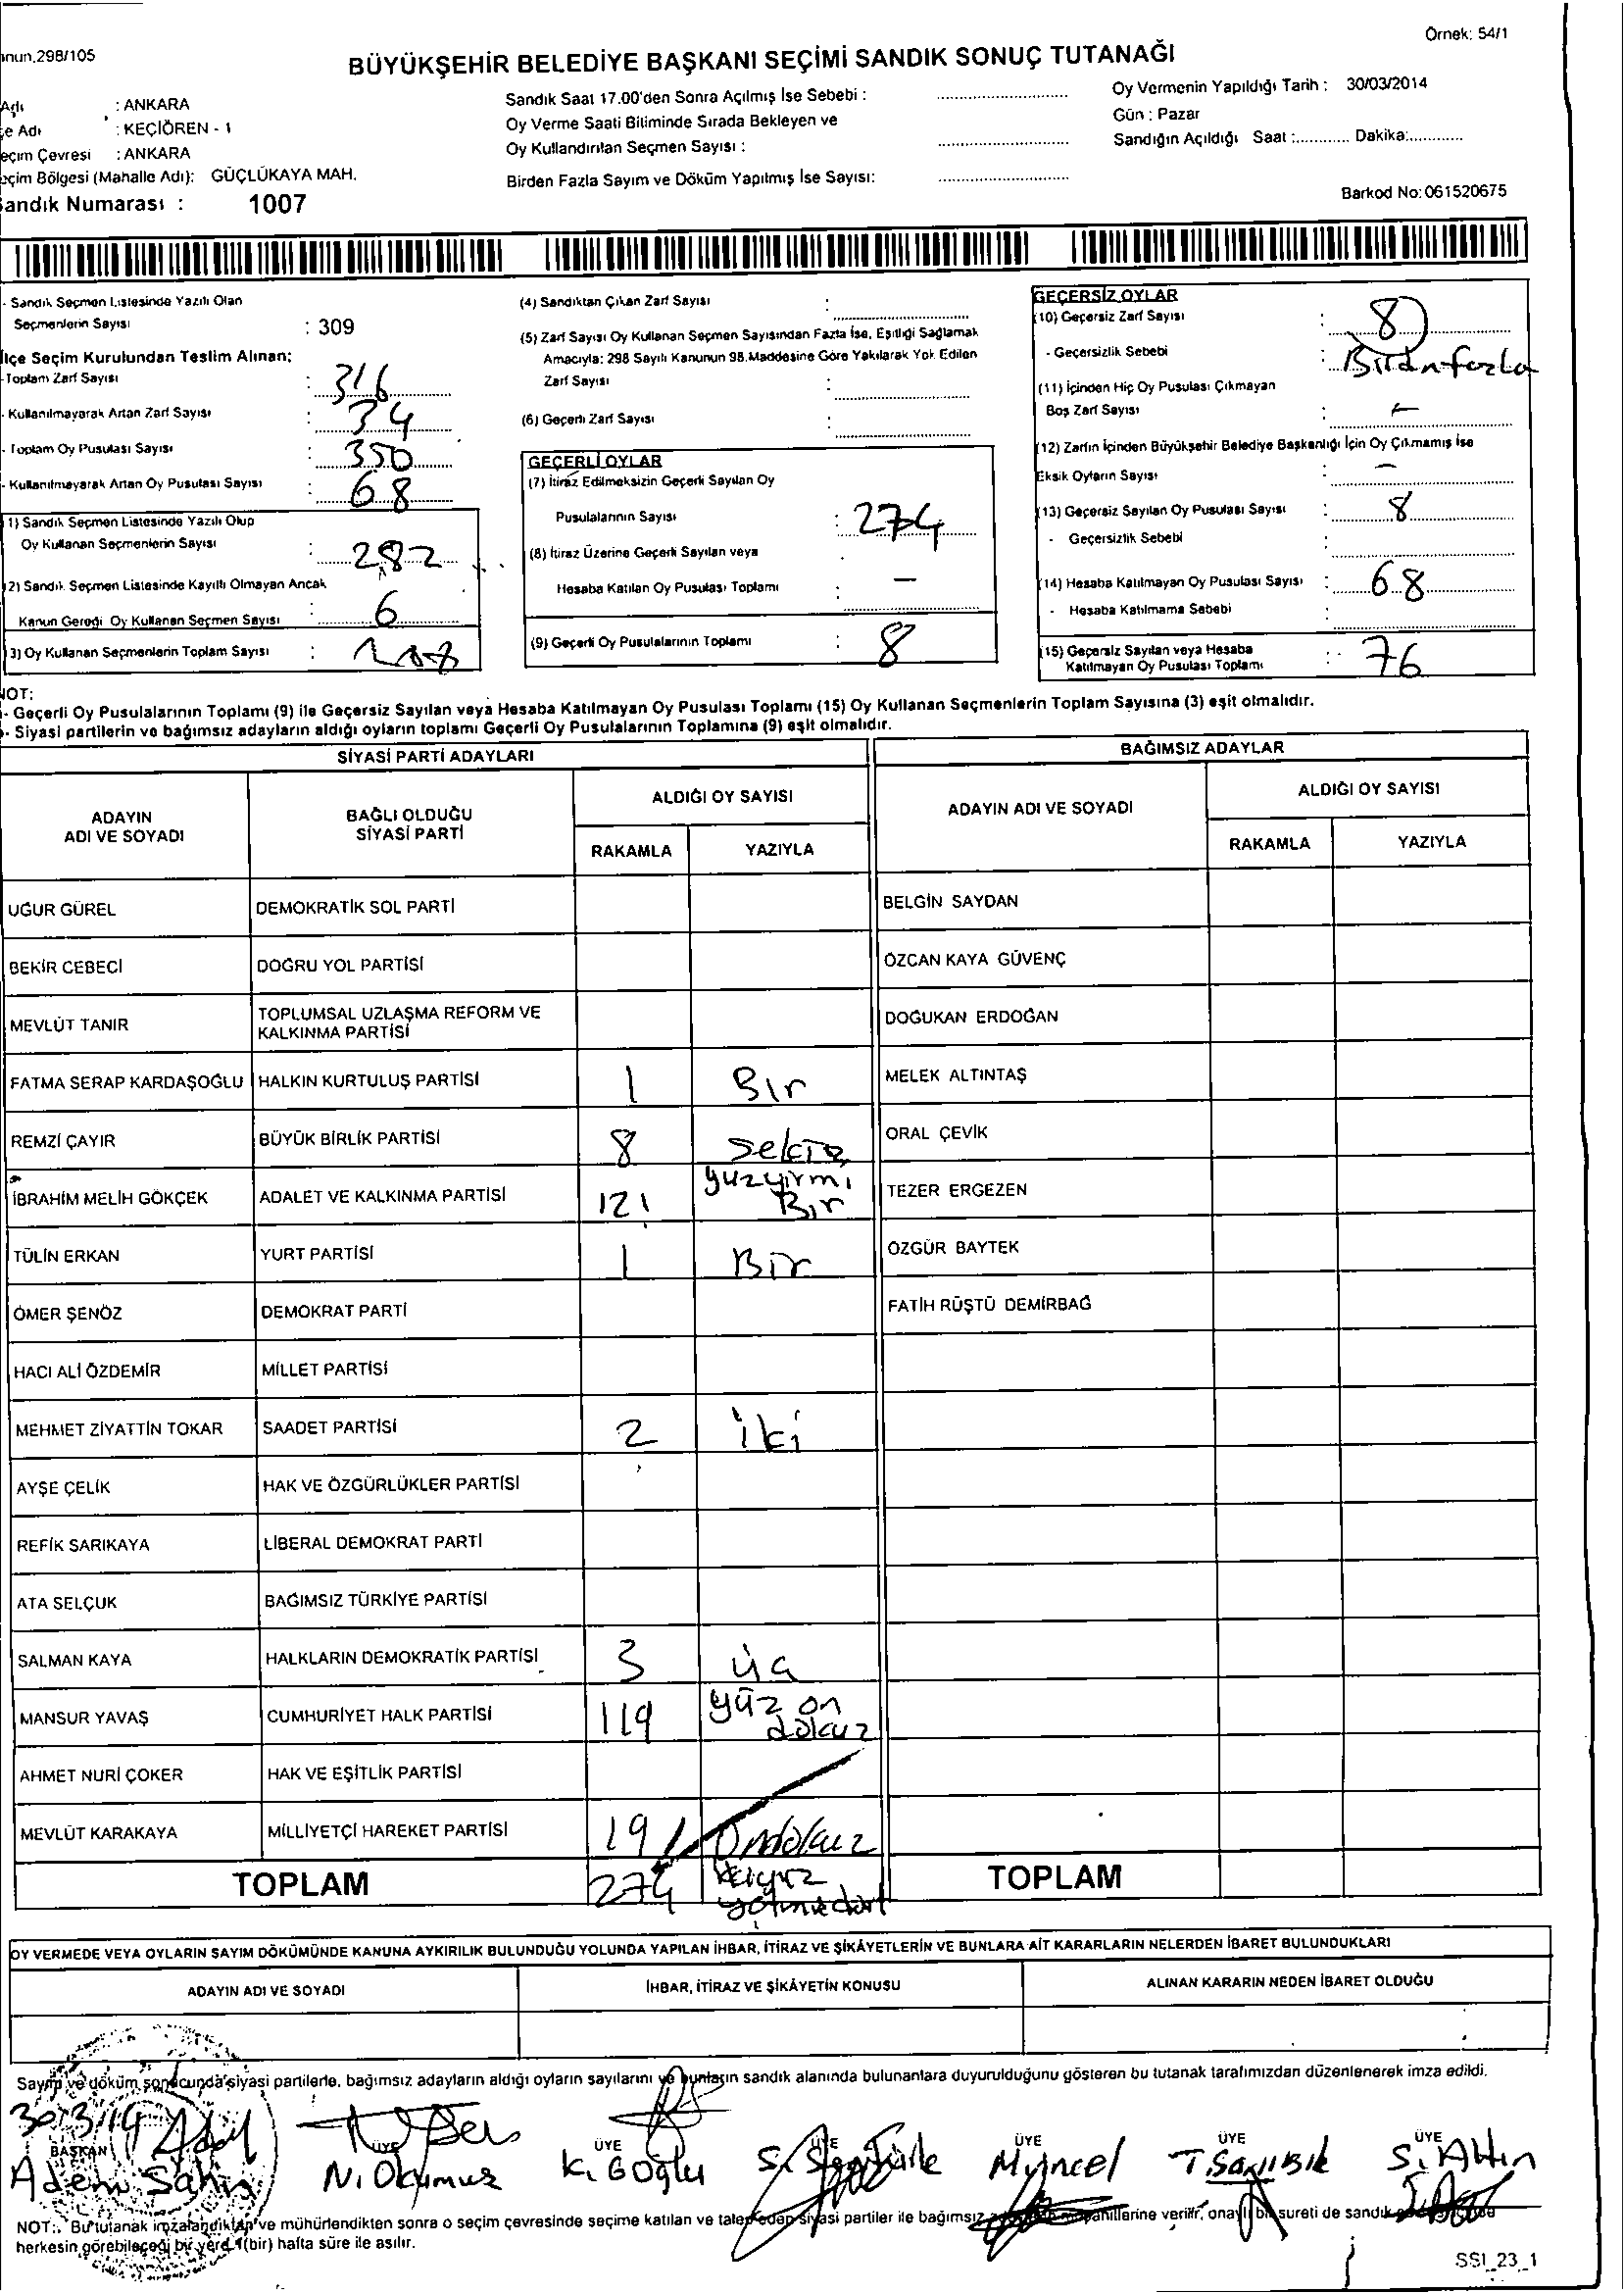 Örnek: 54/1
nun.298/105
BÜYÜKŞEHİR BELEDİYE BAŞKANI SEÇİMİ SANDIK SONUÇ TUTANAĞI
Adı : ANKARA
çe Adı : KEÇİÖREN - 1
eçim Çevresi : ANKARA
eçim Bölgesi (Mahalle Adı): GÜÇLÜKAYA MAH.
Sandık Numarası : 1007
Sandık Saat 17.00'den Sonra Açılmış İse Sebebi :
Oy Verme Saati Bitiminde Sırada Bekleyen ve
Oy Kullandırılan Seçmen Sayısı :
Birden Fazla Sayım ve Döküm Yapılmış İse Sayısı:
Oy Vermenin Yapıldığı Tarih : 30/03/2014
Gün : Pazar
Sandığın Açıldığı Saat :............ Dakika:............
Barkod No: 061520675
- Sandık Seçmen Listesinde Yazılı Olan
Seçmenlerin Sayısı : 309
İlçe Seçim Kurulundan Teslim Alınan:
-Toplam Zarf Sayısı : 316
- Kullanılmayarak Artan Zarf Sayısı : 34
- Toplam Oy Pusulası Sayısı : 350
- Kullanılmayarak Artan Oy Pusulası Sayısı : 68
1) Sandık Seçmen Listesinde Yazılı Olup
Oy Kullanan Seçmenlerin Sayısı : 282
2) Sandık Seçmen Listesinde Kayıtlı Olmayan Ancak
Kanun Gereği Oy Kullanan Seçmen Sayısı : 6
3) Oy Kullanan Seçmenlerin Toplam Sayısı :
(4) Sandıktan Çıkan Zarf Sayısı :
(5) Zarf Sayısı Oy Kullanan Seçmen Sayısından Fazla İse, Eşitliği Sağlamak
Amacıyla: 298 Sayılı Kanunun 98.Maddesine Göre Yakılarak Yok Edilen
Zarf Sayısı :
(6) Geçerli Zarf Sayısı :
GEÇERLİ OYLAR
(7) İtiraz Edilmeksizin Geçerli Sayılan Oy
Pusulalarının Sayısı : 274
(8) İtiraz Üzerine Geçerli Sayılan veya
Hesaba Katılan Oy Pusulası Toplamı : —
(9) Geçerli Oy Pusulalarının Toplamı : 8
GEÇERSİZ OYLAR
(10) Geçersiz Zarf Sayısı : 8
- Geçersizlik Sebebi : Birden fazla
(11) İçinden Hiç Oy Pusulası Çıkmayan
Boş Zarf Sayısı : -
(12) Zarfın İçinden Büyükşehir Belediye Başkanlığı İçin Oy Çıkmamış İse
Eksik Oyların Sayısı : -
(13) Geçersiz Sayılan Oy Pusulası Sayısı : 8
- Geçersizlik Sebebi :
(14) Hesaba Katılmayan Oy Pusulası Sayısı : 68
- Hesaba Katılmama Sebebi :
(15) Geçersiz Sayılan veya Hesaba
Katılmayan Oy Pusulası Toplamı : 76
NOT:
- Geçerli Oy Pusulalarının Toplamı (9) ile Geçersiz Sayılan veya Hesaba Katılmayan Oy Pusulası Toplamı (15) Oy Kullanan Seçmenlerin Toplam Sayısına (3) eşit olmalıdır.
- Siyasi partilerin ve bağımsız adayların aldığı oyların toplamı Geçerli Oy Pusulalarının Toplamına (9) eşit olmalıdır.
SİYASİ PARTİ ADAYLARI
BAĞIMSIZ ADAYLAR
ADAYIN ADI VE SOYADI
BAĞLI OLDUĞU SİYASİ PARTİ
ALDIĞI OY SAYISI
RAKAMLA YAZIYLA
ADAYIN ADI VE SOYADI
ALDIĞI OY SAYISI
RAKAMLA YAZIYLA
UĞUR GÜREL DEMOKRATİK SOL PARTİ BELGİN SAYDAN
BEKİR CEBECİ DOĞRU YOL PARTİSİ ÖZCAN KAYA GÜVENÇ
MEVLÜT TANIR TOPLUMSAL UZLAŞMA REFORM VE KALKINMA PARTİSİ DOĞUKAN ERDOĞAN
FATMA SERAP KARDAŞOĞLU HALKIN KURTULUŞ PARTİSİ 1 Bir MELEK ALTINTAŞ
REMZİ ÇAYIR BÜYÜK BİRLİK PARTİSİ 8 Sekiz ORAL ÇEVİK
İBRAHİM MELİH GÖKÇEK ADALET VE KALKINMA PARTİSİ 121 yüzyirmi Bir TEZER ERGEZEN
TÜLİN ERKAN YURT PARTİSİ 1 Bir ÖZGÜR BAYTEK
ÖMER ŞENÖZ DEMOKRAT PARTİ FATİH RÜŞTÜ DEMİRBAĞ
HACI ALİ ÖZDEMİR MİLLET PARTİSİ
MEHMET ZİYATTİN TOKAR SAADET PARTİSİ 2 iki
AYŞE ÇELİK HAK VE ÖZGÜRLÜKLER PARTİSİ
REFİK SARIKAYA LİBERAL DEMOKRAT PARTİ
ATA SELÇUK BAĞIMSIZ TÜRKİYE PARTİSİ
SALMAN KAYA HALKLARIN DEMOKRATİK PARTİSİ 3 üç
MANSUR YAVAŞ CUMHURİYET HALK PARTİSİ 119 yüz on dokuz
AHMET NURİ ÇOKER HAK VE EŞİTLİK PARTİSİ
MEVLÜT KARAKAYA MİLLİYETÇİ HAREKET PARTİSİ 19 Ondokuz
TOPLAM 274 ikiyüz yetmedört TOPLAM
OY VERMEDE VEYA OYLARIN SAYIM DÖKÜMÜNDE KANUNA AYKIRILIK BULUNDUĞU YOLUNDA YAPILAN İHBAR, İTİRAZ VE ŞİKÂYETLERİN VE BUNLARA AİT KARARLARIN NELERDEN İBARET BULUNDUKLARI
ADAYIN ADI VE SOYADI İHBAR, İTİRAZ VE ŞİKÂYETİN KONUSU ALINAN KARARIN NEDEN İBARET OLDUĞU
Sayım ve döküm sonucunda siyasi partilerle, bağımsız adayların aldığı oyların sayılarını ve bunların sandık alanında bulunanlara duyurulduğunu gösteren bu tutanak tarafımızdan düzenlenerek imza edildi.
30/3/14
BAŞKAN ÜYE ÜYE ÜYE ÜYE ÜYE ÜYE
Adem Şahin N. Okumuş K. Göğlu S. Şentürk M. Yüncel T. Sarıışık S. Altın
NOT: Bu tutanak imzalandıktan ve mühürlendikten sonra o seçim çevresinde seçime katılan ve talep eden siyasi partiler ile bağımsız verilir, onaylı bir sureti de sandık
herkesin görebileceği bir yerde 1(bir) hafta süre ile asılır.
SSI_23_1